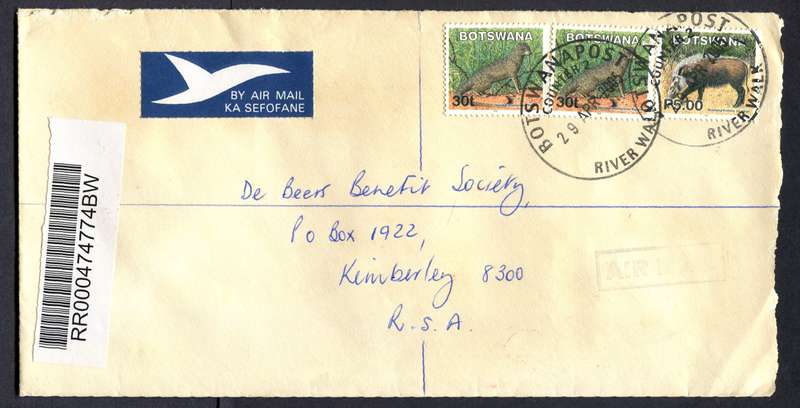 BOTSWANA
30t
BOTSWANA
30t
BOTSWANA
P5.00
BOTSWANAPOST
COUNTER 2
29 APR
RIVER WALK
BOTSWANAPOST
COUNTER 2
RIVER WALK
BY AIR MAIL
KA SEFOFANE
RR000474774BW
De Beers Benefit Society,
PO Box 1922,
Kimberley 8300
R.S.A.
AIR MAIL